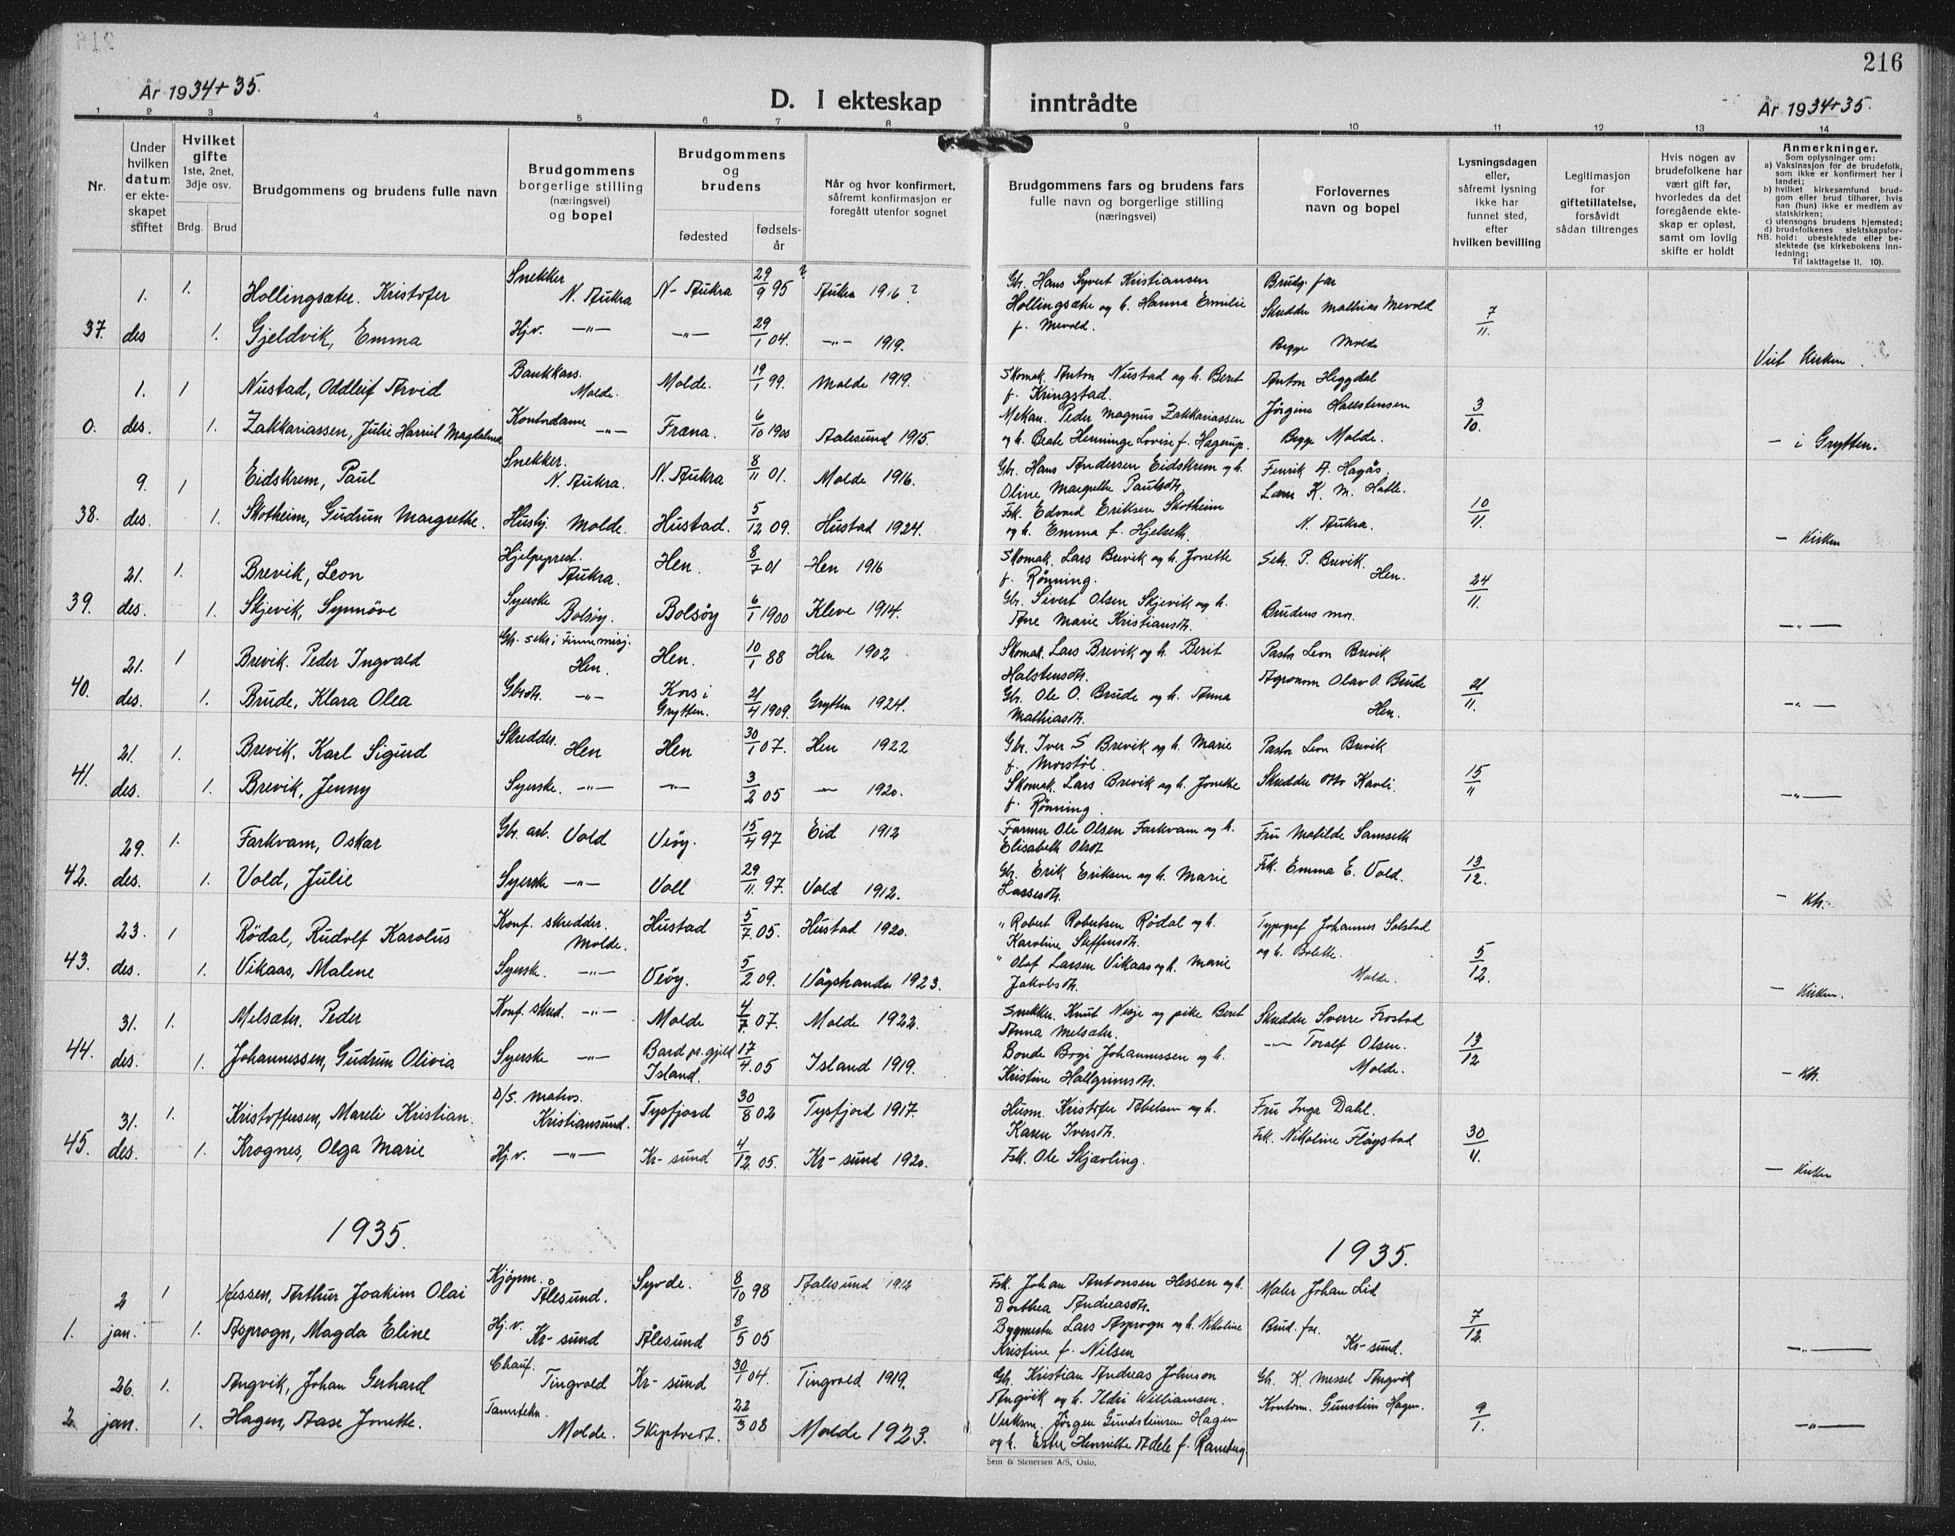 216
År 1934+35.
D. I ekteskap inntrådte
År 1934+35.
1 2 3 4 5 6 7 8 9 10 11 12 13 14
Nr.
Under hvilken datum er ekteskapet stiftet
Hvilket gifte
1ste, 2net, 3dje osv.
Brdg. Brud
Brudgommens og brudens fulle navn
Brudgommens borgerlige stilling (næringsvei) og bopel
Brudgommens og brudens
fødested
fødselsår
Når og hvor konfirmert, såfremt konfirmasjon er foregått utenfor sognet
Brudgommens fars og brudens fars fulle navn og borgerlige stilling (næringsvei)
Forlovernes navn og bopel
Lysningsdagen eller, såfremt lysning ikke har funnet sted, efter hvilken bevilling
Legitimasjon for giftetillatelse, forsåvidt sådan tiltrenges
Hvis nogen av brudefolkene har vært gift før, hvorledes da det foregående ekteskap er opløst, samt om lovlig skifte er holdt
Anmerkninger.
Som oplysninger om:
a) Vaksinasjon for de brudefolk, som ikke er konfirmert her i landet;
b) hvilket kirkesamfund brudgom eller brud tilhører, hvis han (hun) ikke er medlem av statskirken;
c) utensogns brudens hjemsted;
d) brudefolkenes slektskapsforhold: ubeslektede eller beslektede (se kirkebokens innledning;
NB.
Til iakttagelse ll. 10).
1. 1. Hollingsæter. Kristofer Snekker N. Aukra N-Aukra 29/9 95 ? Aukra 1916? Gbr. Hans Syvert Kristiansen Brudg. far
Hollingsæter og h. Hanna Emilie f. Mevold. Skredder Mathias Mevold
37. des 1. Gjeldvik, Emma Hj.v. —"— —"— 29/1 04. —"— 1919. Begge Molde 7/11. Viet Kirken.
1. 1 Nustad, Oddleif Arvid Bankkass. Molde. Molde. 19/1 99. Molde 1919. Skomak. Anton Nustad og h. Berit f. Kringstad. Anton Heggdal
0. des. 1. Zakkariassen, Julie Harriet Magdalene Kontordame —"— Fræna. 6/10 1900 Aalesund 1915. Mekan. Peder Magnus Zakkariassen og h. Beate Henninge Lovise f. Hagerup. Jörgine Hallstensen Begge Molde. 3/10. — i Grytten.
9. 1 Eidskrem, Paul Snekker. N. Aukra. N. Aukra 8/11 01. Molde 1916. Gbr. Hans Andersen Eidskrem og h. Oline Margrethe Paulsdtr. Henrik A. Hagås
38. des. 1. Skotheim, Gudrun Margrethe. Husbj. Molde. Hustad. 5/12 09. Hustad 1924. Fsk. Edvard Eriksen Skotheim og h. Emma f. Hjelseth. Lars K. M. Hatle. N. Aukra. 10/11. — Kirken
21. 1. Brevik, Leon Hjelpeprest. Aukra. Hen. 8/7 01 Hen 1916 Skomak. Lars Brevik og h. Jonette f. Rønning. Sek. P. Brevik. Hen.
39. des. 1. Skjevik, Synnöve Syerske Bolsöy. Bolsöy 6/1 1900 Kleve 1914. Gbr. Sivert Olsen Skjevik og h. Ane Marie Kristiansdtr. Brudens mor. 24/11. —"—
21. 1 Brevik. Peder Ingvald Gbr. sekr. i Finnemisj. Hen. Hen. 10/1 88 Hen 1902 Skomak. Lars Brevik og h. Berit Halstensdtr. Pastor Leon Brevik
40. des. 1. Brude, Klara Olea Gbrdtr. —"— Kors i Grytten. 21/4 1909. Grytten 1924. Gbr. Ole O. Brude og h. Anna Mathiasdtr. Agronom Olav O. Brude Hen. 21/11. —"—
21. 1. Brevik. Karl Sigurd Skredder. Hen Hen 30/1 07. Hen 1922 Gbr. Iver S Brevik og h. Marie f. Morstöl. Pastor Leon Brevik
41. des. 1. Brevik, Jenny Syerske. —"— —"— 3/2 05 —"— 1920. Skomak. Lars Brevik og h. Jonette f. Rønning. Skredder Otto Kavli. 15/11 —"—
29. 1. Farkvam, Oskar Gbr. arb. Vold Veöy. 15/4 97 Eid 1912 Farmer Ole Olsen Farkvam og h. Elisabeth Olsdtr. Fru Matilde Samseth
42. des. 1. Vold, Julie Syerske —"— Voll 29/11 97. Vold 1912. Gbr. Erik Eriksen og h. Marie Lassesdtr. Frk. Emma E. Vold. 13/12. — Kh.
23. 1 Rödal, Rudolf Karolus Konf. skredder. Molde. Hustad 5/7 05. Hustad 1920. " Robert Robertsen Rödal og h. Karoline Steffensdtr. Typograf Johannes Solstad
43. des. 1. Vikaas, Malene Syerske. —"— Veöy. 5/2 09. Vågstranda 1923. " Olaf Larsen Vikaas og h. Marie Jakobsdtr. og h. Bolette. Molde. 5/12. — Kirken.
31. 1. Melsæter. Peder Konf. skred. —"— Molde 4/7 07. Molde 1922. Snekker. Knut Nesje og pike Beret Anna Melsæter. Skredder Sverre Frostad
44. des. 1. Johannessen, Gudrun Olivia Syerske —"— Bard pr.gjeld Island. 17/4 05 Island 1919. Bonde Bogi Johannessen og h. Kristine Hallgrimsdtr. —"— Toralf Olsen. Molde. 13/12 — Kh.
31. 1. Kristoffersen, Mareli Kristian. D/S. matros. Kristiansund. Tysfjord 30/8 02 Tysfjord 1917. Husm. Kristofer Abelsen og h. Karen Iversdtr. Fru Inga Dahl.
45. des. 1. Krognes, Olga Marie Hj.v. —"— Kr-sund 4/12 05. Kr-sund 1920. Fsk. Ole Skjævling. Frk. Nikoline Fløystad 30/11. — Kirken
1935. 1935.
2 1 Hessen, Arthur Joakim Olai Kjöpm. Ålesund. Syvde. 8/10 98 Aalesund 1912 Fsk. Johan Antonsen Hessen og h. Dorthea Andreasdtr. Maler Johan Lid
1. jan. 1. Asprogn, Magda Eline Hj.v. Kr-sund Ålesund 8/5 05 Bygmester Lars Asprogn og h. Nikoline Kristine f. Nilsen Brud. far. Kr-sund. 7/12. —"—
26. 1. Angvik, Johan Gerhard Chauf. Tingvold Kr-sund 30/1 04. Tingvold 1919. Gbr. Kristian Andreas Johnson Angvik og h. Ildri Williamsen. Gbr. K. Messel Angvik
2. jan. 1. Hagen, Aase Jonette. Tanntekn. Molde. Skiptvedt. 22/3 08 Molde 1923. Verksm. Jörgen Gundsteinsen Hagen og h. Ester Henriette Adele f. Ramberg Kontorm. Gunstein Hagen. 9/1. —"—
Sem & Stenersen A/S, Oslo.